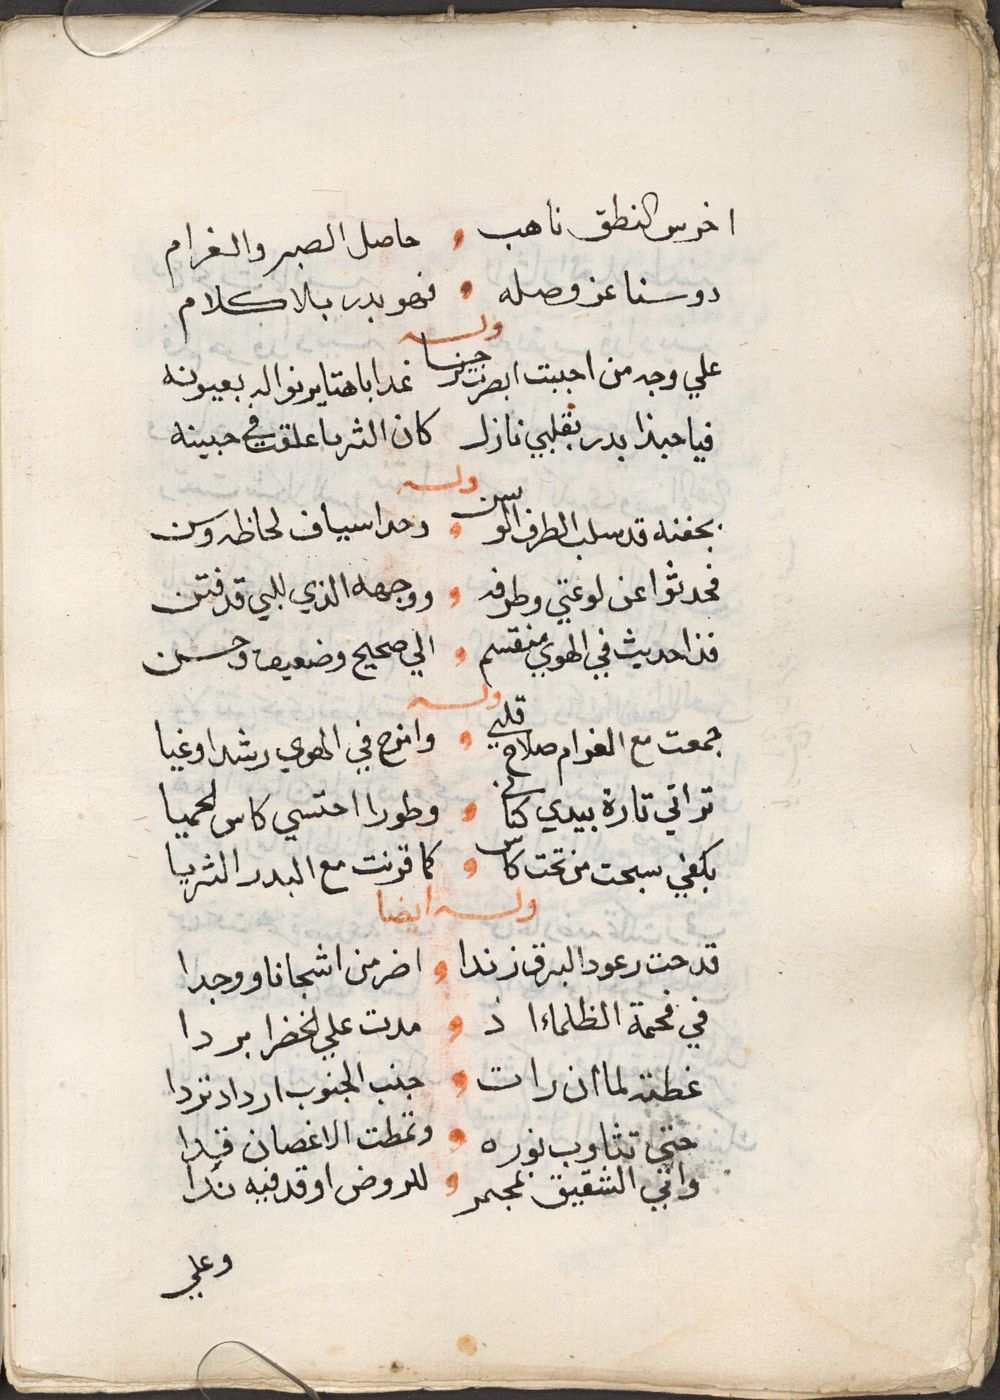 اخرس النطق ناهب ، حاصل الصبر والغرام
دوسنا عن وصله ، فهو بدر بلا كلام
وله
علي وجه من احببت ابصرت غدا باهتا يرنوا اليه بعيونه
فيا حبذا بدر بقلبي نازل كان الثريا علقت في جبينه
وله
بجفنه قد سلب الطرف الوسن ، وحد اسياف لحاظه وسن
فحدثوا عن لوعتي وطرفه ، ووجهه الذي للبي قد فتن
فذا حديث في الهوي منقسم ، الي صحيح وضعيف وحسن
وله
جمعت مع الغرام صلاح قلبي ، وامزج في الهوي رشدا وغيا
تراني تارة بيدي كتابي ، وطورا احتسي كاس الحميا
بكفي سبحت من تحت كاس ، كما قرنت مع البدر الثريا
وله ايضا
قدحت رعود البرق زندا ، اضر من اشجانا ووجدا
في فحمة الظلماء اذ ، مدت علي الخضرا بردا
غطته لما ان رات ، جنب الجنوب ازداد نردا
حتي تثاوب نوره ، وتمطت الاغصان قدا
واتي الشقيق بمجمر ، للروض اوقد فيه ندا
وعلي